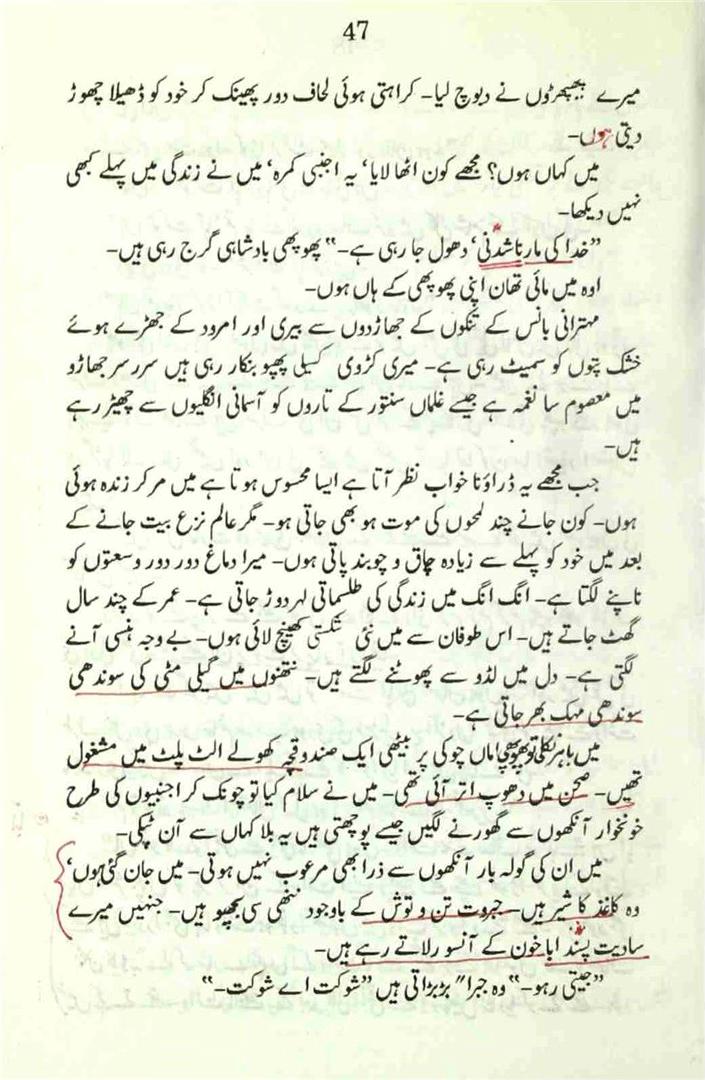 47
میرے پھیپھڑوں نے دبوچ لیا۔ کراہتی ہوئی لحاف دور پھینک کر خود کو ڈھیلا چھوڑ
دیتی ہوں۔
میں کہاں ہوں؟ مجھے کون اٹھا لایا‘ یہ اجنبی کمرہ‘ میں نے زندگی میں پہلے کبھی
نہیں دیکھا۔
”خدا کی مار ناشدنی‘ دھول جا رہی ہے۔“ پھوپھی بادشاہی گرج رہی ہیں۔
اوہ میں مائی تھان اپنی پھوپھی کے ہاں ہوں۔
مہترانی بانس کے تنکوں کے جھاڑووں سے بیری اور امرود کے جھڑے ہوئے
خشک پتوں کو سمیٹ رہی ہے۔ میری کڑوی کسیلی پھپو ہنکار رہی ہیں سرر سرر جھاڑو
میں معصوم سا نغمہ ہے جیسے غلماں سنتور کے تاروں کو آسمانی انگلیوں سے چھیڑ رہے
ہیں۔
جب مجھے یہ ڈراؤنا خواب نظر آتا ہے ایسا محسوس ہوتا ہے میں مر کر زندہ ہوئی
ہوں۔ کون جانے چند لمحوں کی موت ہو بھی جاتی ہو۔ مگر عالم نزع بیت جانے کے
بعد میں خود کو پہلے سے زیادہ چاق و چوبند پاتی ہوں۔ میرا دماغ دور دور وسعتوں کو
ناپنے لگتا ہے۔ انگ انگ میں زندگی کی طلسماتی لہر دوڑ جاتی ہے۔ عمر کے چند سال
گھٹ جاتے ہیں۔ اس طوفان سے میں نئی شکتی کھینچ لائی ہوں۔ بے وجہ ہنسی آنے
لگتی ہے۔ دل میں لڈو سے پھوٹنے لگتے ہیں۔ نتھنوں میں گیلی مٹی کی سوندھی
سوندھی مہک بھر جاتی ہے۔
میں باہر نکلی تو پھوپھی اماں چوکی پر بیٹھی ایک صندوقچہ کھولے الٹ پلٹ میں مشغول
تھیں۔ صحن میں دھوپ اتر آئی تھی۔ میں نے سلام کیا تو چونک کر اجنبیوں کی طرح
خونخوار آنکھوں سے گھورنے لگیں جیسے پوچھتی ہیں یہ بلا کہاں سے آن ٹپکی۔
میں ان کی گولہ بار آنکھوں سے ذرا بھی مرعوب نہیں ہوتی۔ میں جان گئی ہوں‘
وہ کاغذ کا شیر ہیں۔ جبروت تن و توش کے باوجود ننھی سی پھپو ہیں۔ جنہیں میرے
سادیت پسند ابا خون کے آنسو رلاتے رہے ہیں۔
”جیتی رہو۔“ وہ جبراً بڑبڑاتی ہیں ”شوکت اے شوکت۔“